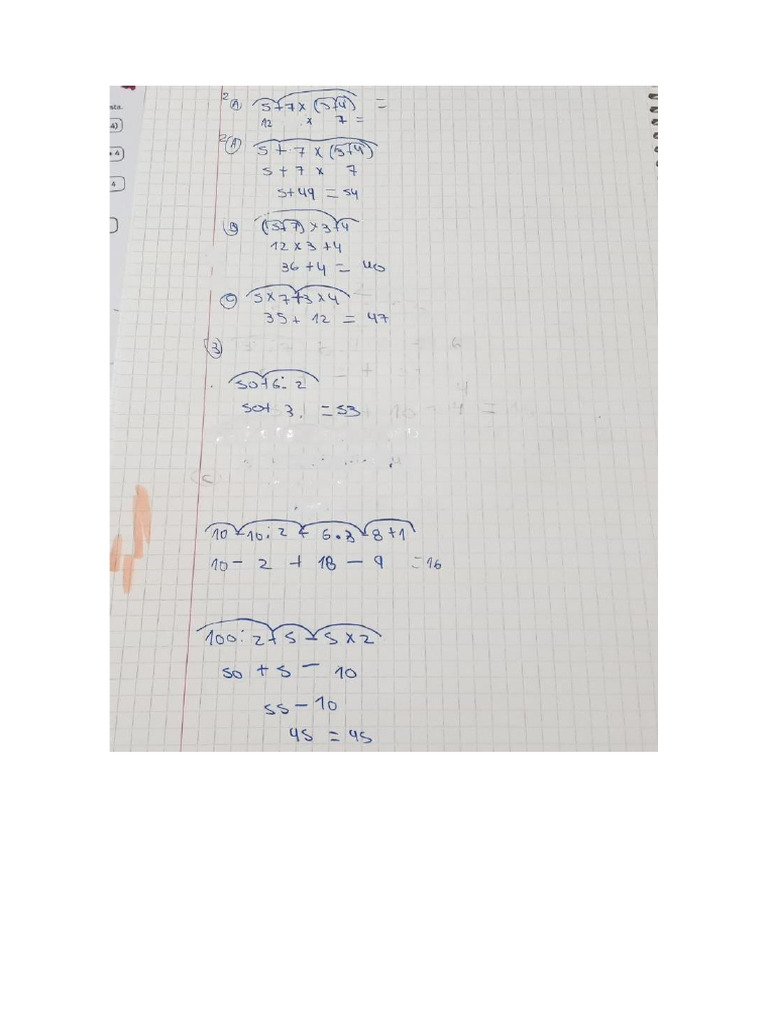 ste.
4)
+ 4
4
2 A 5+7x(3+4) =
12 x 7 =
2 A 5+7x(3+4)
5+7x 7
5+49=54
B (5+7)x3+4
12x3+4
36+4= 40
C 5x7+3x4
35+ 12 = 47
3
50+6:2
50+ 3. =53
10-10:2+ 6.3-8+1
10- 2 + 18 - 9 =16
100:2+5-5x2
50 +5- 10
55-10
45 = 45